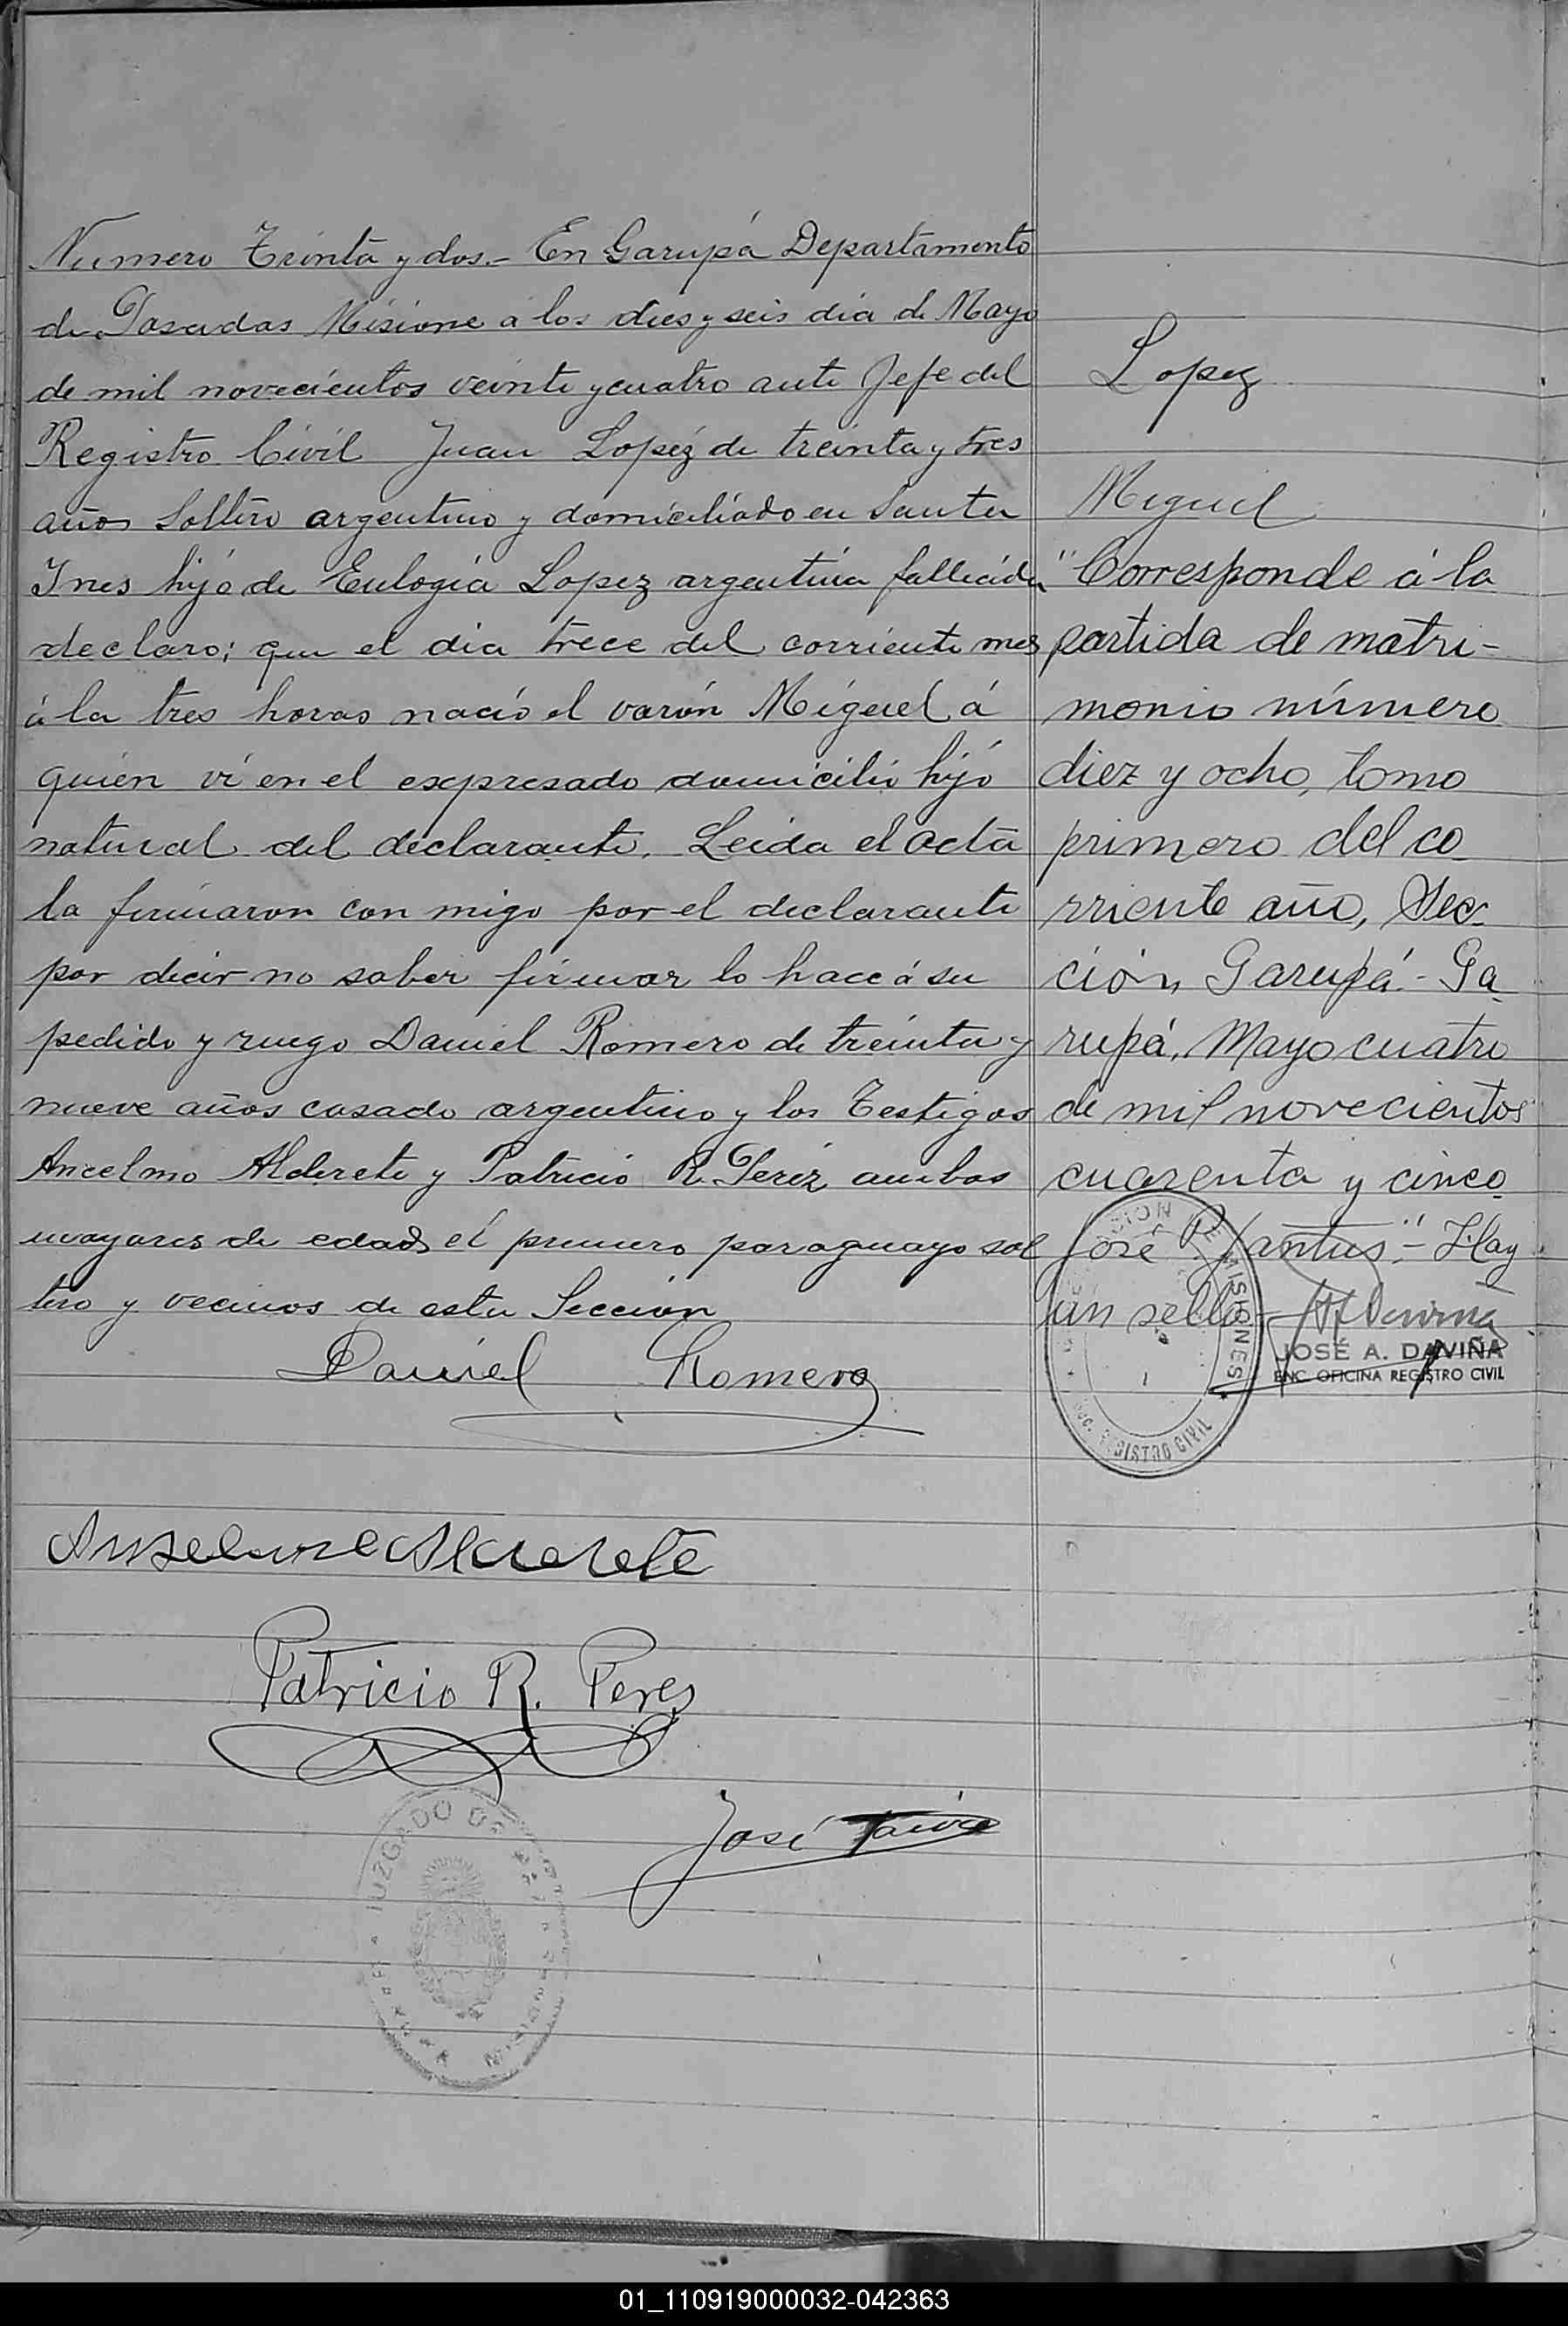 Numero Treinta y dos.- En Garupá Departamento
de Posadas Misione a los dies y seis dia de Mayo
de mil novecientos veinte y cuatro ante Jefe del
Registro Civil Juan Lopez de treinta y tres
años soltero argentino y domiciliado en Santa
Ines hijo de Eulogia Lopez argentina fallecida
declaro; que el dia trece del corriente mes
á la tres horas nació el varón Miguel á
quien ví en el expresado domicilio hijo
natural del declarante. Leida el acta
la firmaron con migo por el declarante
por decir no saber firmar lo hace á su
pedido y ruego Daniel Romero de treinta y
nueve años casado argentino y los Testigos
Ancelmo Alderete y Patricio R. Perez ambos
mayares de edad el primero paraguayo sol
tero y vecinos de esta Sección
Daniel Romero
Anselmo Alderete
Patricio R. Peres
José
JUZGADO DE
Lopez
Miguel
"Corresponde á la
partida de matri-
monio número
diez y ocho, tomo
primero del co
rriente año, Sec-
ción Garupá.- Ga
rupá, Mayo cuatro
de mil novecientos
cuarenta y cinco
José Santus".- Hay
un sello-
JOSÉ A. DAVIÑA
ENC. OFICINA REGISTRO CIVIL
MISIONES
REGISTRO CIVIL
01_110919000032-042363